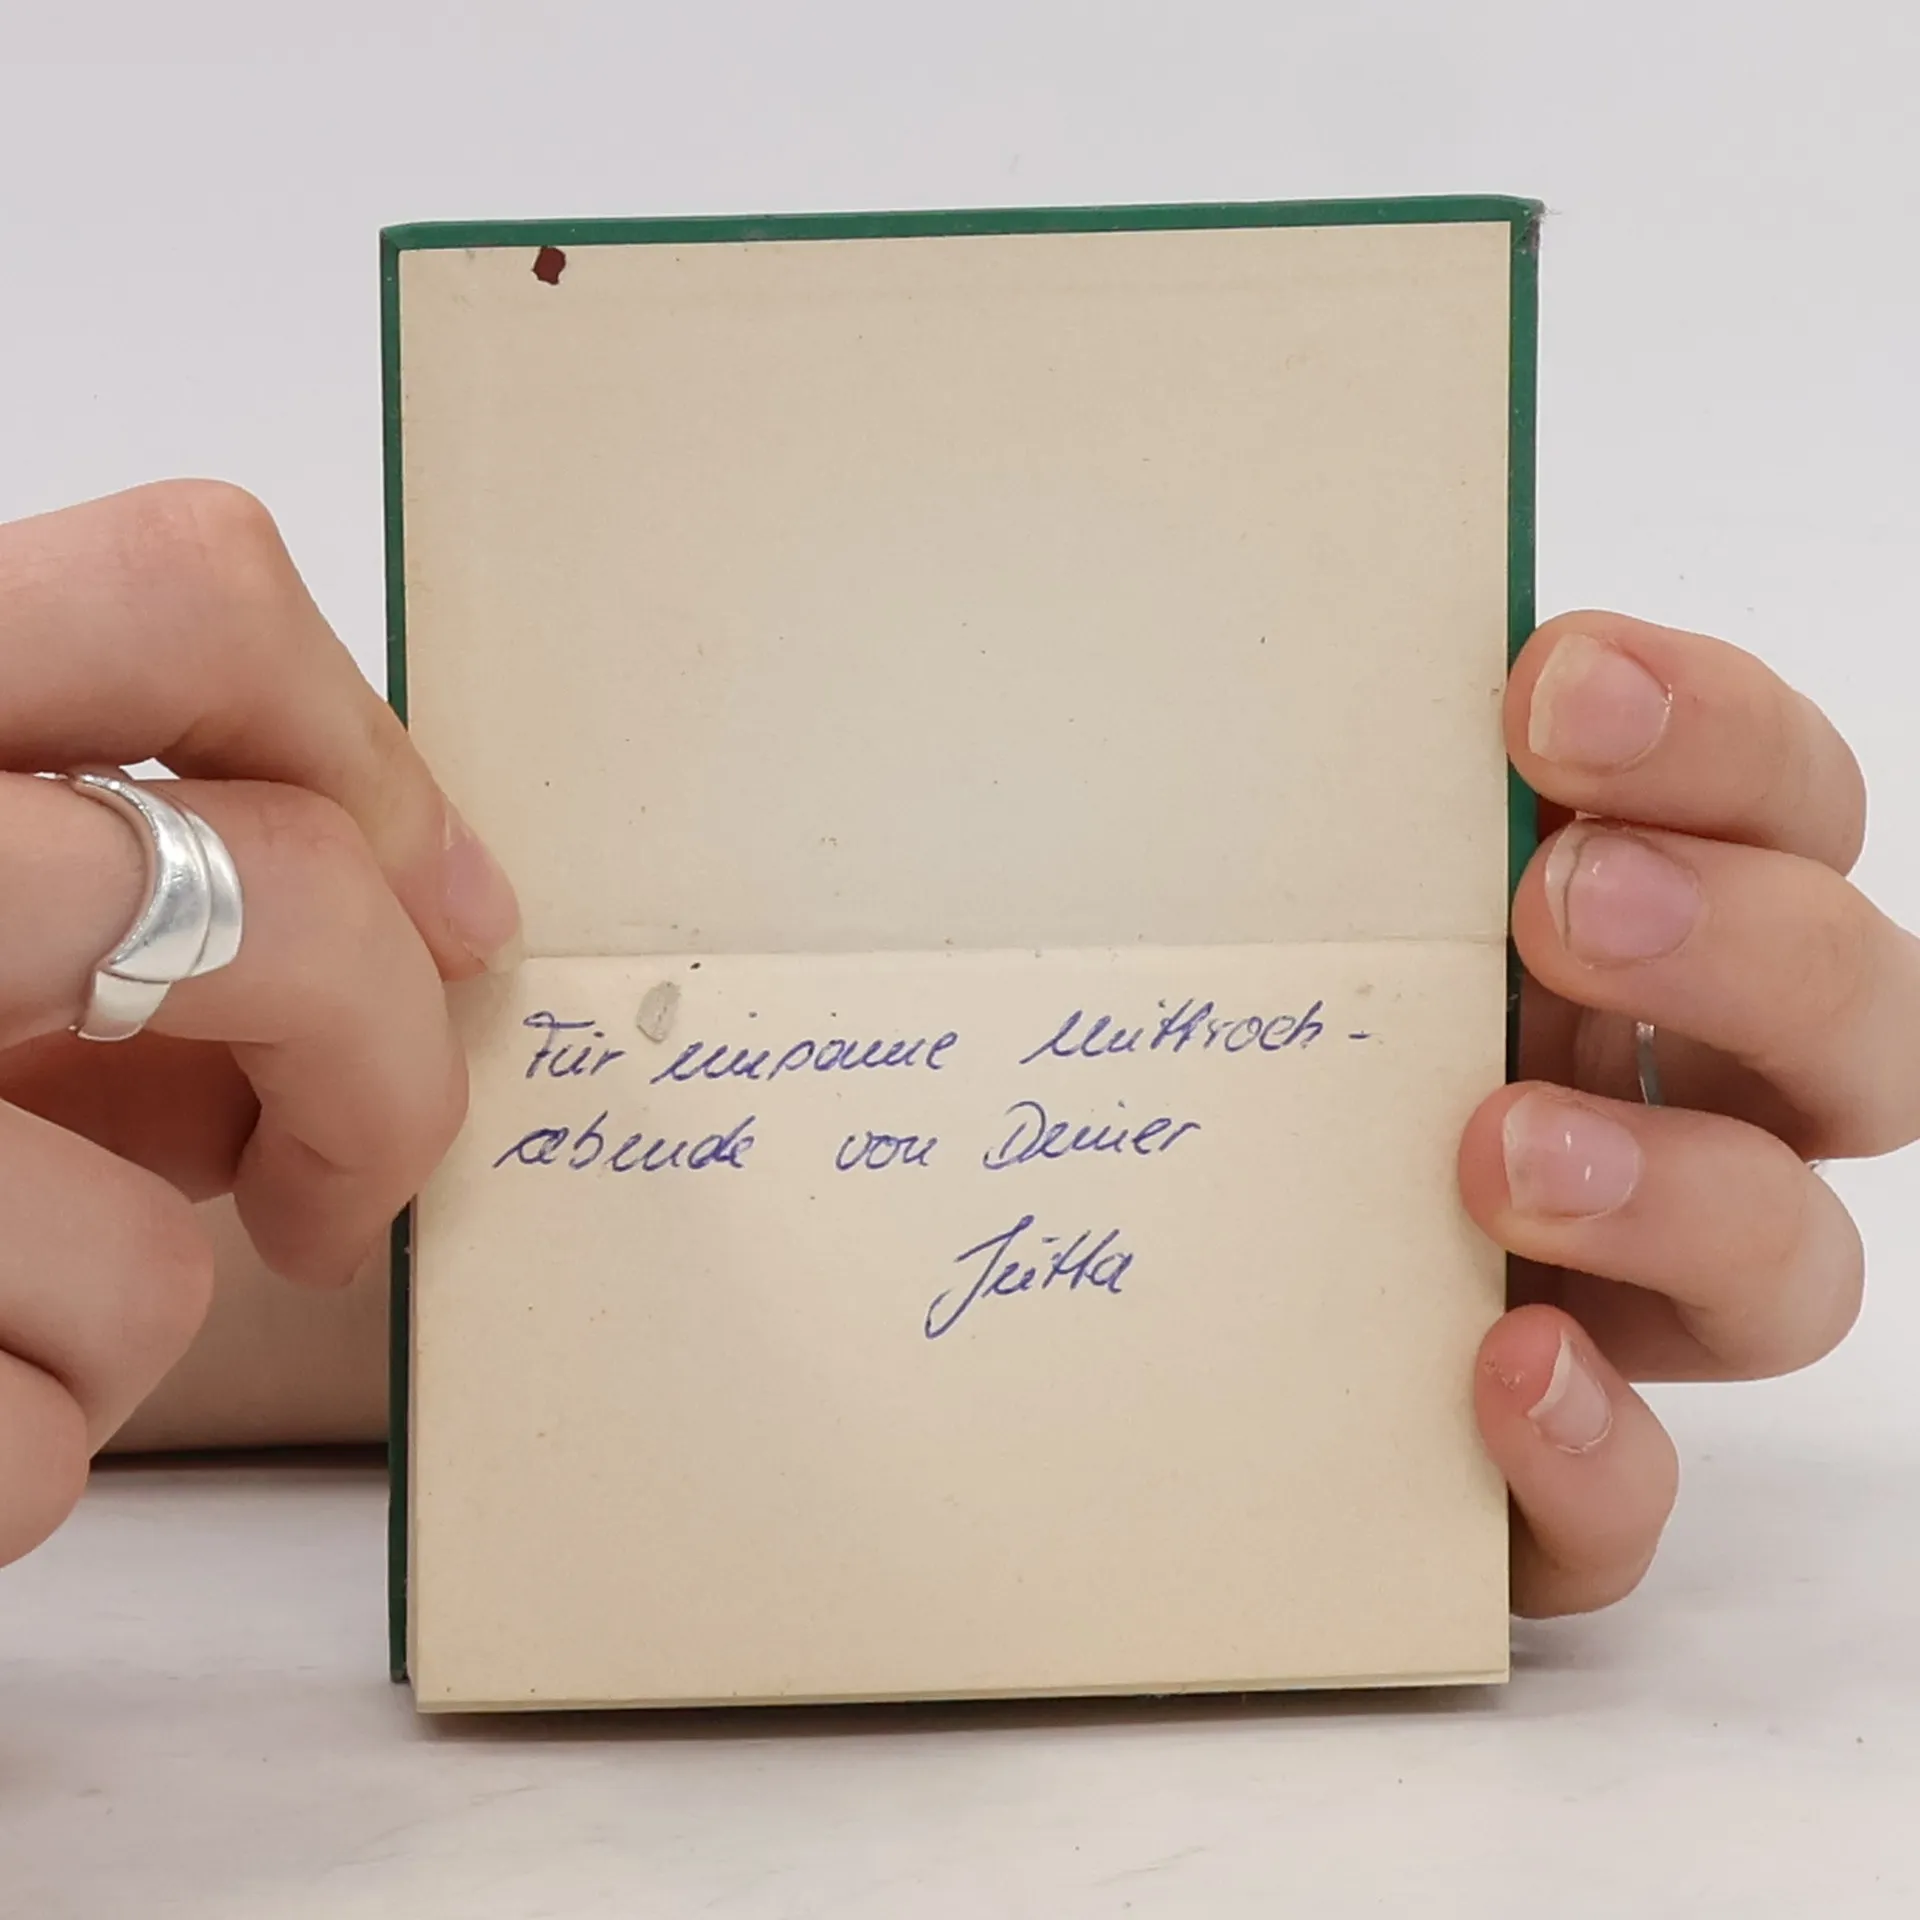 Für einsame Mittwoch-
abende von Deiner
Jutta